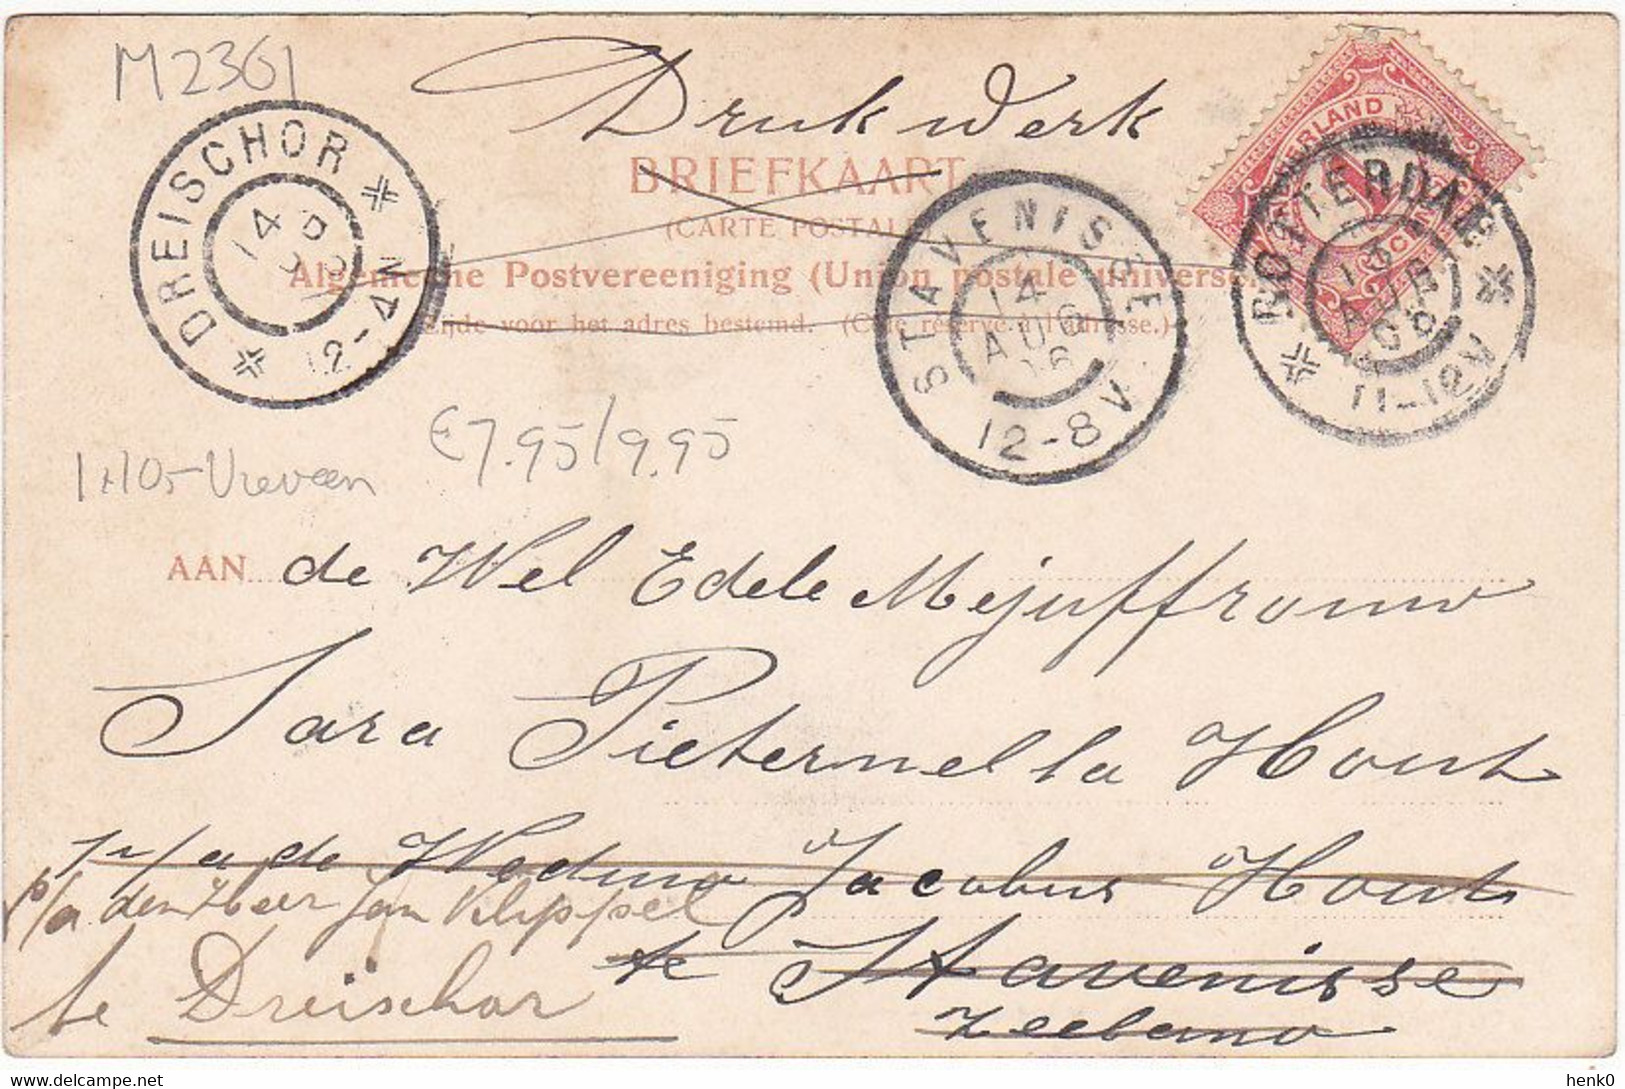 M2361
Drukwerk
BRIEFKAART
(CARTE POSTALE)
Algemeene Postvereeniging (Union postale universelle)
Zijde voor het adres bestemd. (Côté réservé à l'adresse.)
DREISCHOR
14
12-4N
STAVENISSE
14
AUG
06
12-8V
NEDERLAND
ROTTERDAM
13
AUG
11-12V
€7.95/9.95
AAN de Wel Edele Mejuffrouw
Sara Pieternella Hout
p/a de Weduw Jacobus Hout
p/a den Heer Jan Klippel
te Stavenisse
te Dreischor
Zeeland
henk0